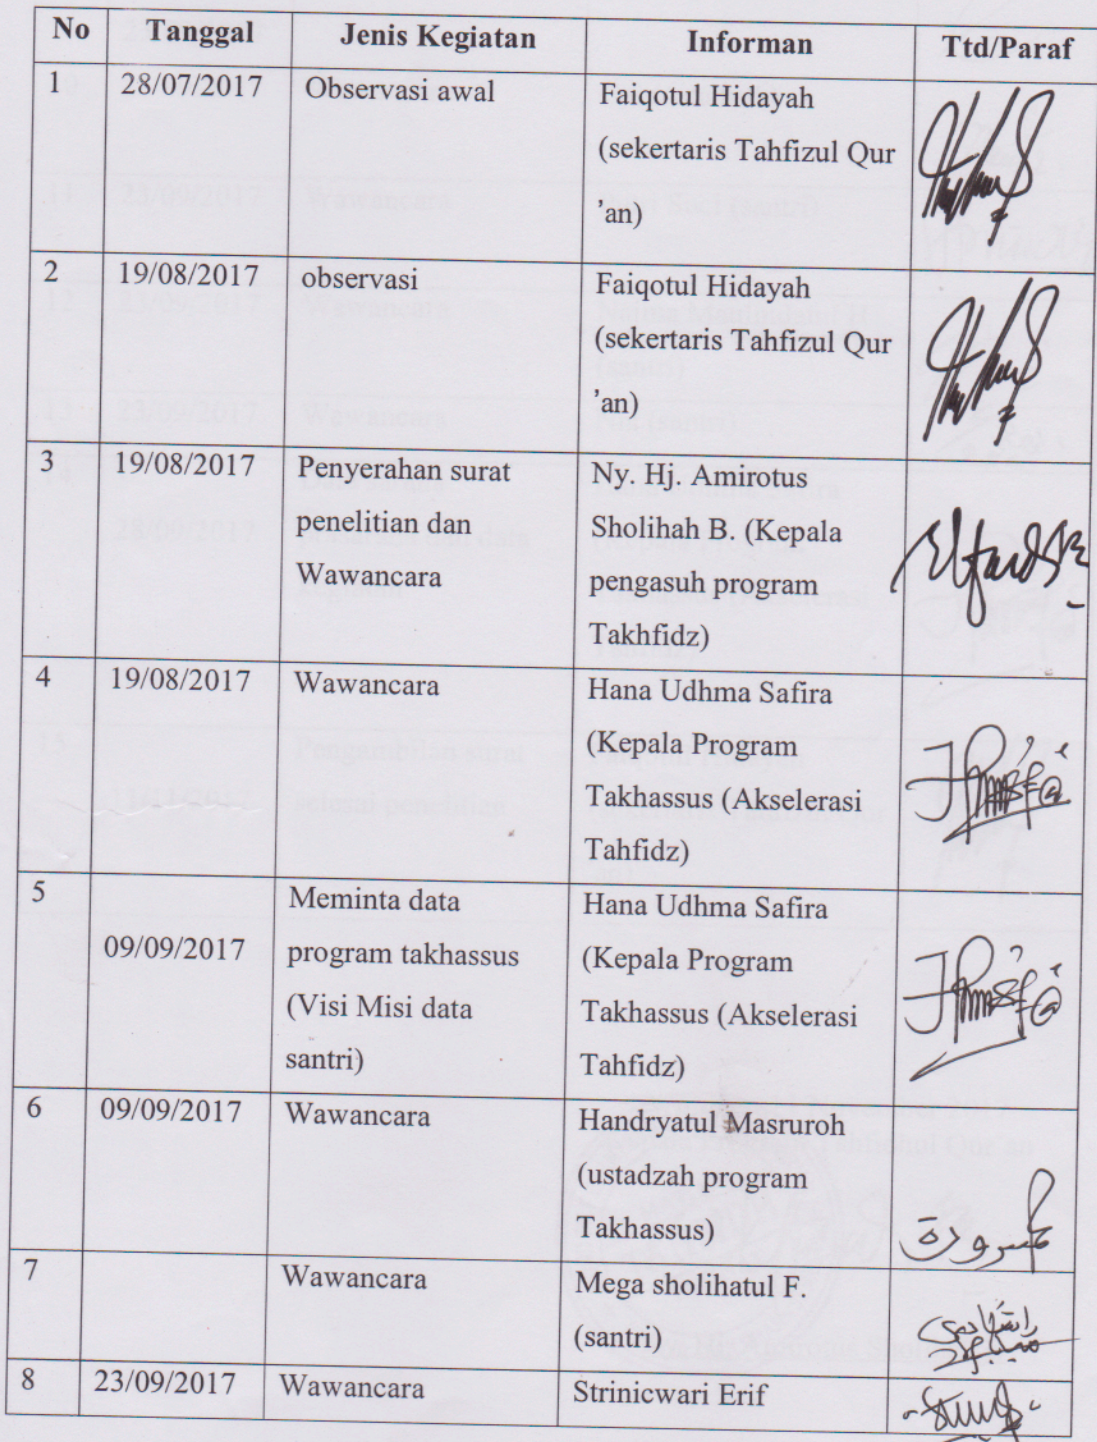 No Tanggal Jenis Kegiatan Informan Ttd/Paraf
1 28/07/2017 Observasi awal Faiqotul Hidayah
(sekertaris Tahfizul Qur
’an)
2 19/08/2017 observasi Faiqotul Hidayah
(sekertaris Tahfizul Qur
’an)
3 19/08/2017 Penyerahan surat Ny. Hj. Amirotus
penelitian dan Sholihah B. (Kepala
Wawancara pengasuh program
Takhfidz)
4 19/08/2017 Wawancara Hana Udhma Safira
(Kepala Program
Takhassus (Akselerasi
Tahfidz)
5 Meminta data Hana Udhma Safira
09/09/2017 program takhassus (Kepala Program
(Visi Misi data Takhassus (Akselerasi
santri) Tahfidz)
6 09/09/2017 Wawancara Handryatul Masruroh
(ustadzah program
Takhassus)
7 Wawancara Mega sholihatul F.
(santri)
8 23/09/2017 Wawancara Strinicwari Erif